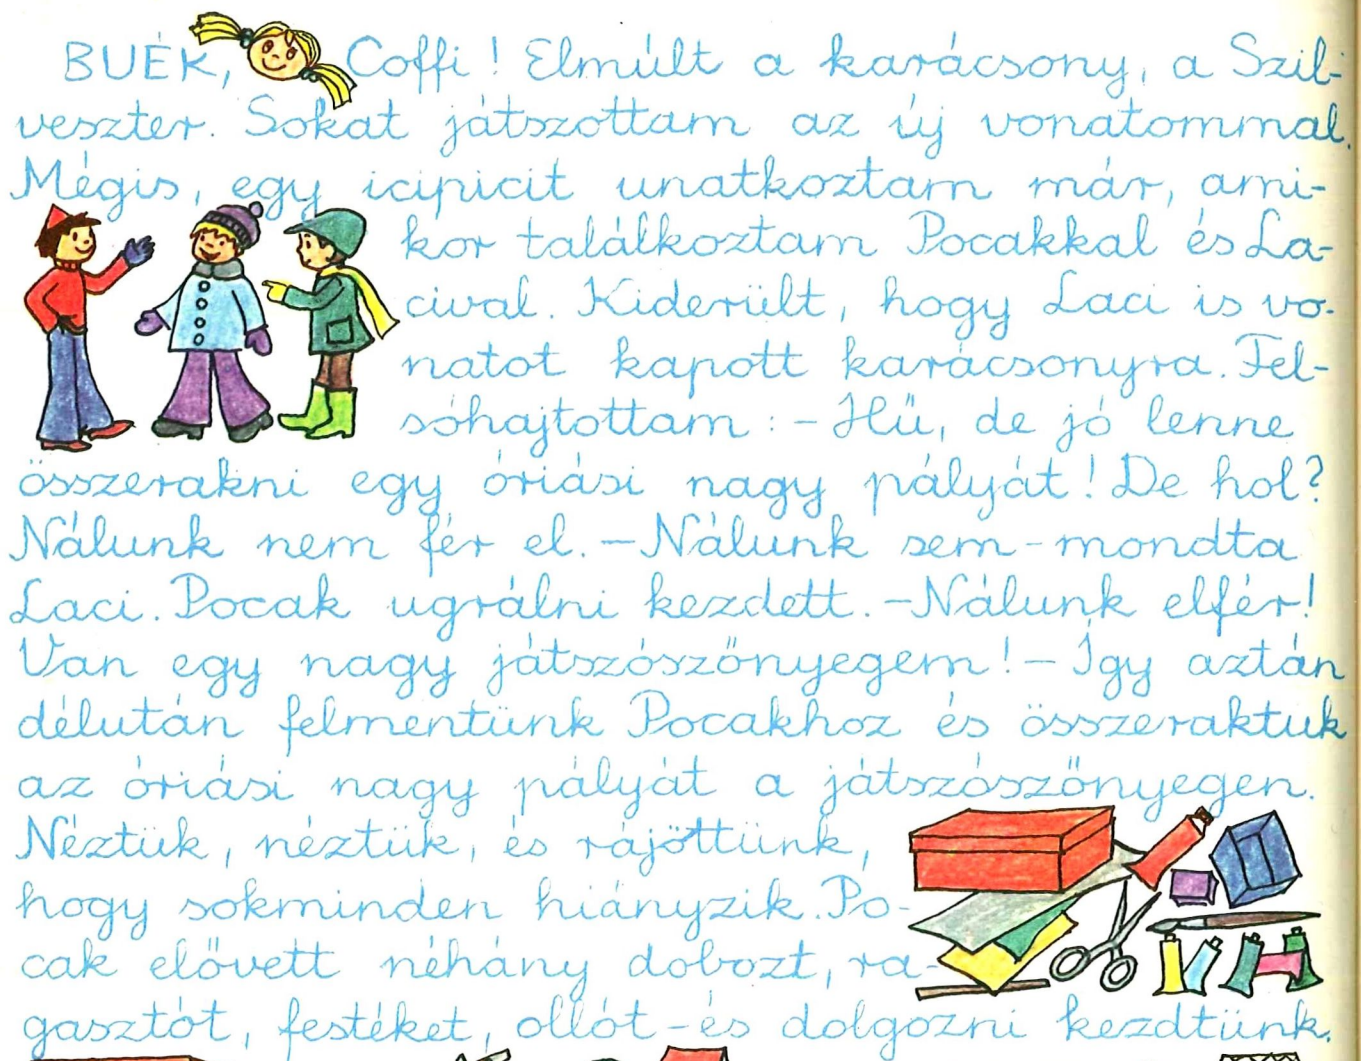 BUÉK, Coffi! Elmúlt a karácsony, a Szil-
veszter. Sokat játszottam az új vonatommal.
Mégis, egy icipicit unatkoztam már, ami-
kor találkoztam Pocakkal és La-
cival. Kiderült, hogy Laci is vo-
natot kapott karácsonyra. Fel-
sóhajtottam: - Hű, de jó lenne
összerakni egy óriási nagy pályát! De hol?
Nálunk nem fér el. - Nálunk sem - mondta
Laci. Pocak ugrálni kezdett. - Nálunk elfér!
Van egy nagy játszószőnyegem! - Így aztán
délután felmentünk Pocakhoz és összeraktuk
az óriási nagy pályát a játszószőnyegen.
Néztük, néztük, és rájöttünk,
hogy sokminden hiányzik. Po-
cak elővett néhány dobozt, ra-
gasztót, festéket, ollót - és dolgozni kezdtünk.